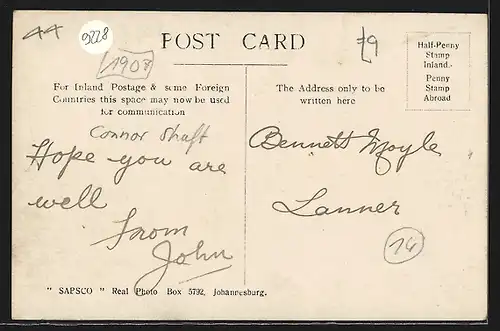 44
9228
POST CARD
£9
1908
Half-Penny
Stamp
Inland.
Penny
Stamp
Abroad
For Inland Postage & some Foreign
Countries this space may now be used
for communication
The Address only to be
written here
Connor Shaft
Hope you are
well
From
John
Bennett Moyle
Lanner
14
" SAPSCO " Real Photo Box 5792, Johannesburg.